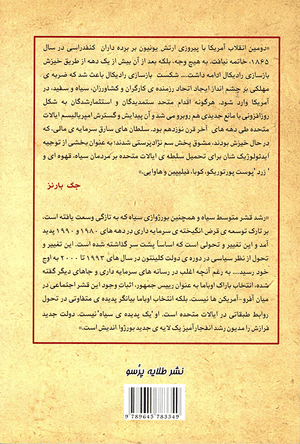 «دومین انقلاب آمریکا با پیروزی ارتش یونیون بر برده داران کنفدراسی در سال
۱۸۶۵، خاتمه نیافت. به هیچ وجه، بلکه بعد از آن بیش از یک دهه از طریق خیزش
بازسازی رادیکال ادامه داشت.... شکست بازسازی رادیکال باعث شد که ضربه ی
مهلکی بر چشم انداز ایجاد اتحاد رزمنده ی کارگران و کشاورزان، سیاه و سفید، در
آمریکا وارد شود. هرگونه اقدام متحد ستمدیدگان و استثمارشدگان به شکل
روزافزونی با مانع جدیدی هم روبرو می شد و آن پیدایش و گسترش امپریالیسم ایالات
متحده طی دهه های آخر قرن نوزدهم بود. سلطان های سارق سرمایه ی مالی، که
در حال خیزش بودند، مشوق پخش سم نژادپرستی شدند؛ به عنوان بخشی از توجیه
ایدئولوژیک شان برای تحمیل سلطه ی ایالات متحده بر مردمان سیاه، قهوه ای و
'زرد' پوست پورتوریکو، کوبا، فیلیپین و هاوایی».
جک بارنز
«رشد قشر متوسط سیاه و همچنین بورژوازی سیاه که به تازگی وسعت یافته است،
بر تارک توسعه ی قرض انگیخته ی سرمایه داری در دهه های ۱۹۸۰ و ۱۹۹۰ پدید
آمد و این تغییر و تحولی است که اساساً پشت سر گذاشته شده است. این تغییر و
تحول از نظر سیاسی در دوره ی دولت کلینتون در سال های ۱۹۹۳ تا ۲۰۰۰ به اوج
خود رسید.... به رغم آنچه اغلب در رسانه های سرمایه داری و جاهای دیگر گفته
شده، انتخاب باراک اوباما به عنوان رییس جمهور، اثبات وجود این قشر اجتماعی در
میان آفرو-آمریکن ها نیست. بلکه انتخاب اوباما بیانگر پدیده ی متفاوتی در تحول
روابط طبقاتی در ایالات متحده است. او 'یک پدیده ی سیاه' نیست. دولت جدید
فرازش را مدیون رشد انفجارآمیز یک لایه ی جدید بورژوا اندیش است.»
نشر طلایه پرسو
9 789645 783349